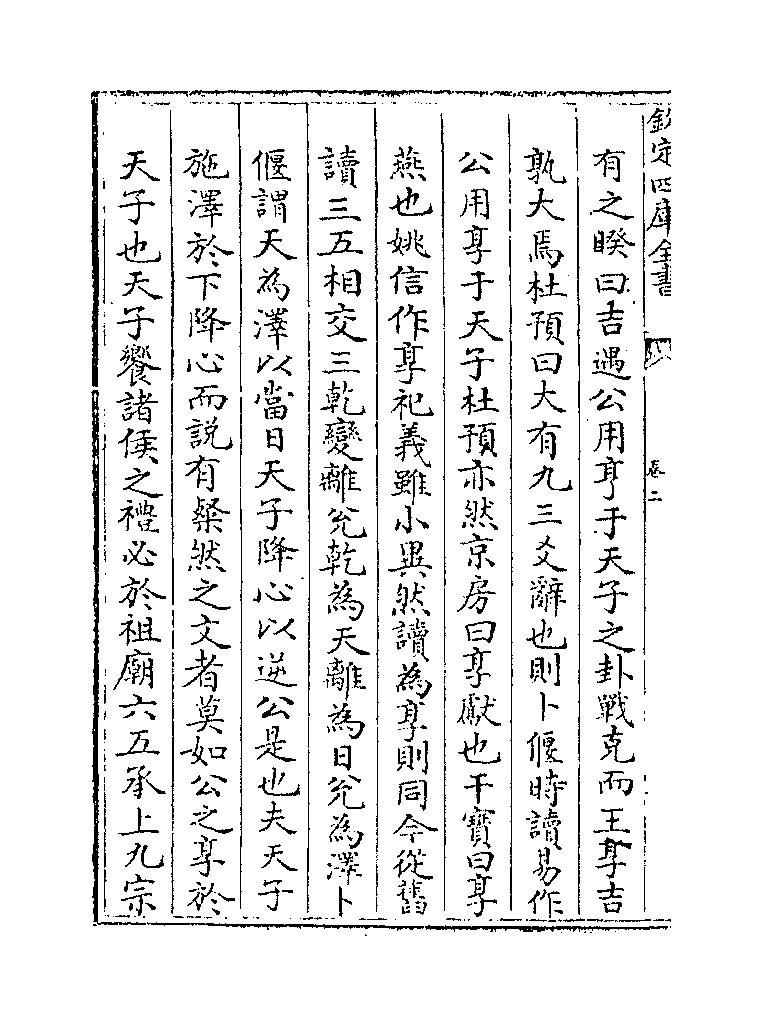 欽定四庫全書
卷二
有之睽曰吉遇公用亨于天子之卦戰克而王享吉
孰大焉杜預曰大有九三爻辭也則卜偃時讀易作
公用享于天子杜預亦然京房曰享獻也干寶曰享
燕也姚信作享祀義雖小異然讀為享則同今從舊
讀三五相交三乾變離兊乾為天離為日兊為澤卜
偃謂天為澤以當日天子降心以逆公是也夫天子
施澤於下降心而説有粲然之文者莫如公之享於
天子也天子饗諸侯之禮必於祖廟六五承上九宗